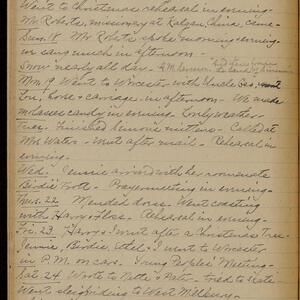 Went to Christmas rehearsal in evening.
Mr Roberts, missionary at Kalgan, China, came
Sun. 18. Mr Roberts spoke morning & evening.
we sang much in afternoon -
Snow nearly all day.
Mon 19. Went to Worcester with Uncle Geo, went
horse & carriage, in afternoon - We made
molasses candy in evening - lovely weather.
Tues. Finished mittens - Called at
Mrs Water - Went after mail - Rehearsal in
evening.
Wed. Jennie arrived with her roommate
Birdie Trott - Prayermeeting in evening.
Thurs. 22. Mended doves. Went coasting
with Harry & Floss - Rehearsal in evening.
Fri. 23. Harry & I went after a Christmas Tree.
Jennie, Birdie, Ethel & I went to Worcester
in P.M. on cars. Young Peoples' Meeting.
Sat 24. Wrote to Nette & Pater. Tried to skate
Went sleighriding to West Millbury.